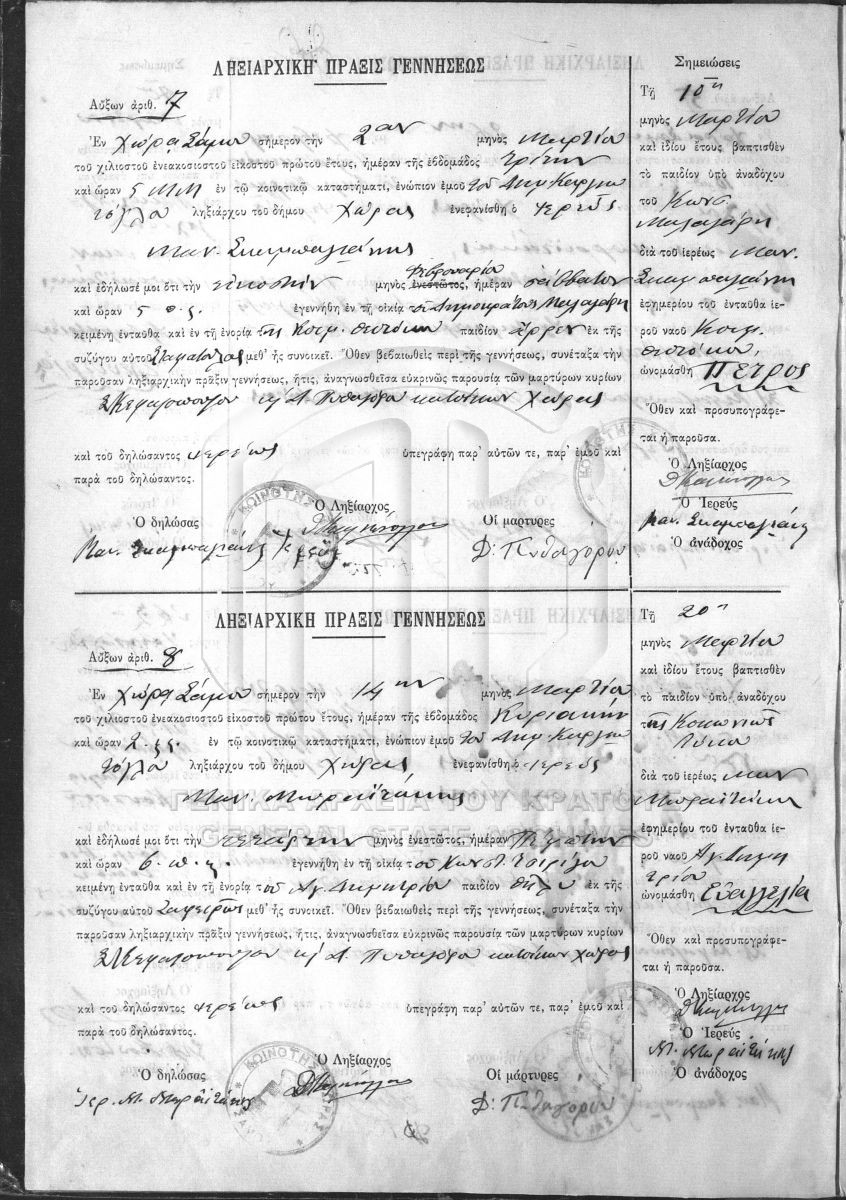 ΛΗΞΙΑΡΧΙΚΗ ΠΡΑΞΙΣ ΓΕΝΝΗΣΕΩΣ
Αὔξων ἀριθ. 7
Ἐν Χώρᾳ Σάμου σήμερον τὴν 2αν μηνὸς Μαρτίου
τοῦ χιλιοστοῦ ἐνεακοσιοστοῦ εἰκοστοῦ πρώτου ἔτους, ἡμέραν τῆς ἑβδομάδος Τρίτην
καὶ ὥραν 5 ΜΜ ἐν τῷ κοινοτικῷ καταστήματι, ἐνώπιον ἐμοῦ τοῦ Δημ.
ληξιάρχου τοῦ δήμου Χώρας ἐνεφανίσθη ὁ ἱερεὺς
Μαν.
καὶ ἐδήλωσέ μοι ὅτι τὴν εἰκοστὴν μηνὸς ἐνεστῶτος Φεβρουαρίου, ἡμέραν Σάββατον
καὶ ὥραν 5 ἐγεννήθη ἐν τῇ οἰκίᾳ
κειμένῃ ἐνταῦθα καὶ ἐν τῇ ἐνορίᾳ τῆς Κοιμ. Θεοτόκου παιδίον ἄρρεν ἐκ τῆς
συζύγου αὐτοῦ μεθ' ἧς συνοικεῖ. Ὅθεν βεβαιωθεὶς περὶ τῆς γεννήσεως, συνέταξα τὴν
παροῦσαν ληξιαρχικὴν πρᾶξιν γεννήσεως, ἥτις, ἀναγνωσθεῖσα εὐκρινῶς παρουσίᾳ τῶν μαρτύρων κυρίων
Δ. Πυθαγόρα κατοίκων Χώρας
καὶ τοῦ δηλώσαντος ἱερέως ὑπεγράφη παρ' αὐτῶν τε, παρ' ἐμοῦ καὶ
παρὰ τοῦ δηλώσαντος.
Ὁ δηλώσας
Ὁ Ληξίαρχος
Οἱ μάρτυρες
Δ. Πυθαγόρου
Σημειώσεις
Τῇ 10ῃ
μηνὸς Μαρτίου
καὶ ἰδίου ἔτους βαπτισθὲν
τὸ παιδίον ὑπὸ ἀναδόχου
τοῦ Κωνσ.
Μαλαγάρη
διὰ τοῦ ἱερέως Μαν.
ἐφημερίου τοῦ ἐνταῦθα ἱε-
ροῦ ναοῦ Κοιμ.
Θεοτόκου,
ὠνομάσθη Πέτρος
Ὅθεν καὶ προσυπογράφε-
ται ἡ παροῦσα.
Ὁ Ληξίαρχος
Ὁ Ἱερεὺς
Ὁ ἀνάδοχος
ΛΗΞΙΑΡΧΙΚΗ ΠΡΑΞΙΣ ΓΕΝΝΗΣΕΩΣ
Αὔξων ἀριθ. 8
Ἐν Χώρᾳ Σάμου σήμερον τὴν 14ην μηνὸς Μαρτίου
τοῦ χιλιοστοῦ ἐνεακοσιοστοῦ εἰκοστοῦ πρώτου ἔτους, ἡμέραν τῆς ἑβδομάδος Κυριακὴν
καὶ ὥραν 2 ἐν τῷ κοινοτικῷ καταστήματι, ἐνώπιον ἐμοῦ τοῦ Δημ.
ληξιάρχου τοῦ δήμου Χώρας ἐνεφανίσθη ὁ ἱερεὺς
Μαν. Μωραϊτάκης
ΓΕΝΙΚΑ ΑΡΧΕΙΑ ΤΟΥ ΚΡΑΤΟΥΣ
GENERAL STATE ARCHIVES
καὶ ἐδήλωσέ μοι ὅτι τὴν τετάρτην μηνὸς ἐνεστῶτος, ἡμέραν Πέμπτην
καὶ ὥραν 6 π. ἐγεννήθη ἐν τῇ οἰκίᾳ τοῦ Κωνστ.
κειμένῃ ἐνταῦθα καὶ ἐν τῇ ἐνορίᾳ τοῦ Ἁγ. Δημητρίου παιδίον θῆλυ ἐκ τῆς
συζύγου αὐτοῦ Σαφειρῶς μεθ' ἧς συνοικεῖ. Ὅθεν βεβαιωθεὶς περὶ τῆς γεννήσεως, συνέταξα τὴν
παροῦσαν ληξιαρχικὴν πρᾶξιν γεννήσεως, ἥτις, ἀναγνωσθεῖσα εὐκρινῶς παρουσίᾳ τῶν μαρτύρων κυρίων
Δ. Πυθαγόρα κατοίκων Χώρας
καὶ τοῦ δηλώσαντος ἱερέως ὑπεγράφη παρ' αὐτῶν τε, παρ' ἐμοῦ καὶ
παρὰ τοῦ δηλώσαντος.
Ὁ δηλώσας
Ὁ Ληξίαρχος
Οἱ μάρτυρες
Δ. Πυθαγόρου
Τῇ 20ῃ
μηνὸς Μαρτίου
καὶ ἰδίου ἔτους βαπτισθὲν
τὸ παιδίον ὑπὸ ἀναδόχου
τῆς Κοκωνιῶς
Λύκου
διὰ τοῦ ἱερέως Μαν
Μωραϊτάκη
ἐφημερίου τοῦ ἐνταῦθα ἱε-
ροῦ ναοῦ Ἁγ. Δημη
τρίου
ὠνομάσθη Εὐαγγελία
Ὅθεν καὶ προσυπογράφε-
ται ἡ παροῦσα.
Ὁ Ληξίαρχος
Ὁ Ἱερεὺς
Ὁ ἀνάδοχος